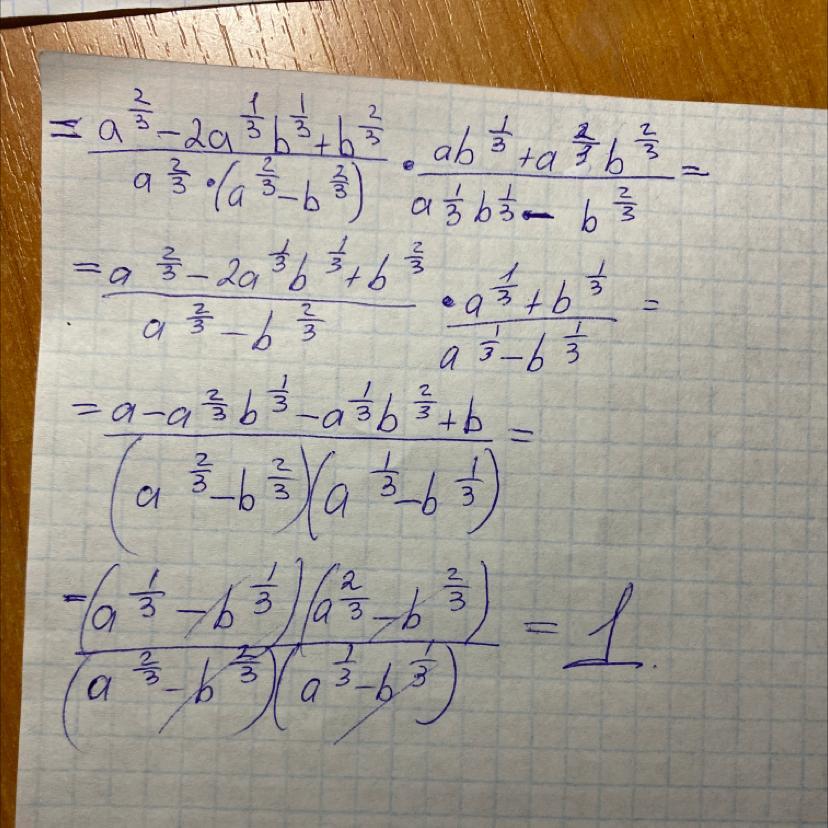 = (a^(2/3) - 2a^(1/3)b^(1/3) + b^(2/3))/(a^(2/3) · (a^(2/3) - b^(2/3))) · (ab^(1/3) + a^(2/3)b^(2/3))/(a^(1/3)b^(1/3) - b^(2/3)) =
= (a^(2/3) - 2a^(1/3)b^(1/3) + b^(2/3))/(a^(2/3) - b^(2/3)) · (a^(1/3) + b^(1/3))/(a^(1/3) - b^(1/3)) =
= (a - a^(2/3)b^(1/3) - a^(1/3)b^(2/3) + b)/((a^(2/3) - b^(2/3))(a^(1/3) - b^(1/3))) =
= ((a^(1/3) - b^(1/3))(a^(2/3) - b^(2/3)))/((a^(2/3) - b^(2/3))(a^(1/3) - b^(1/3))) = 1.